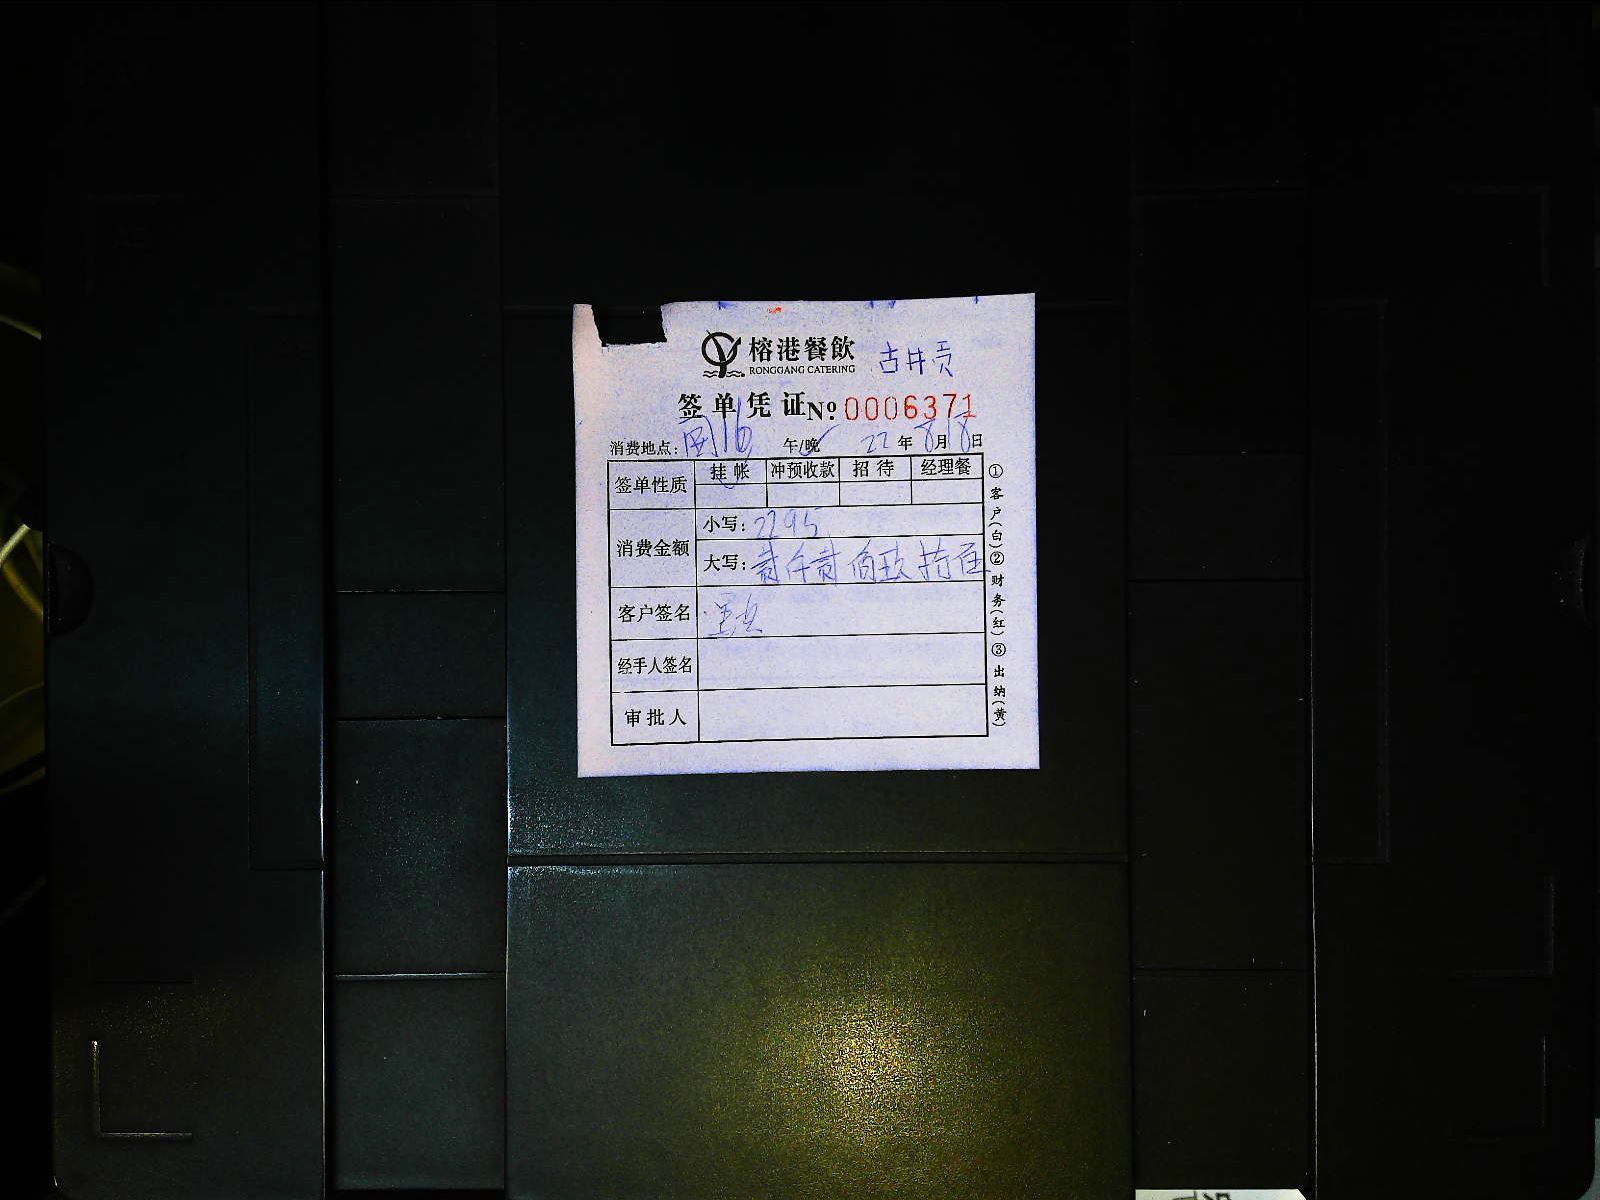 榕港餐飲 古井贡
RONGGANG CATERING
签单凭证 Nº 0006371
消费地点: 阁16 午/晚 22年8月18日
签单性质 挂帐 冲预收款 招待 经理餐
消费金额 小写: 2295
大写: 贰仟贰佰玖拾伍
客户签名
经手人签名
审批人
①客户(白)②财务(红)③出纳(黄)